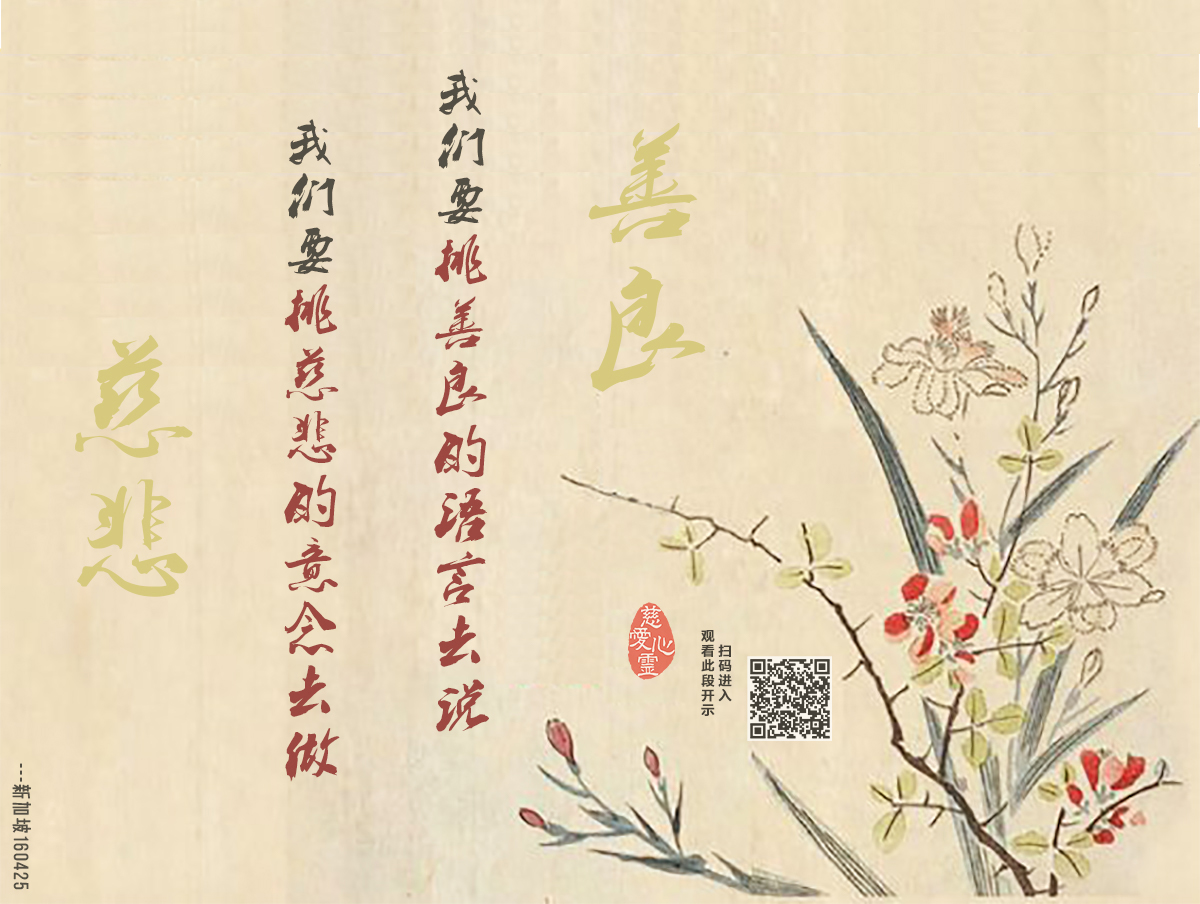 善良
我们要挑善良的语言去说
我们要挑慈悲的意念去做
慈悲
慈心
爱靈
扫码进入
观看此段开示
---新加坡160425